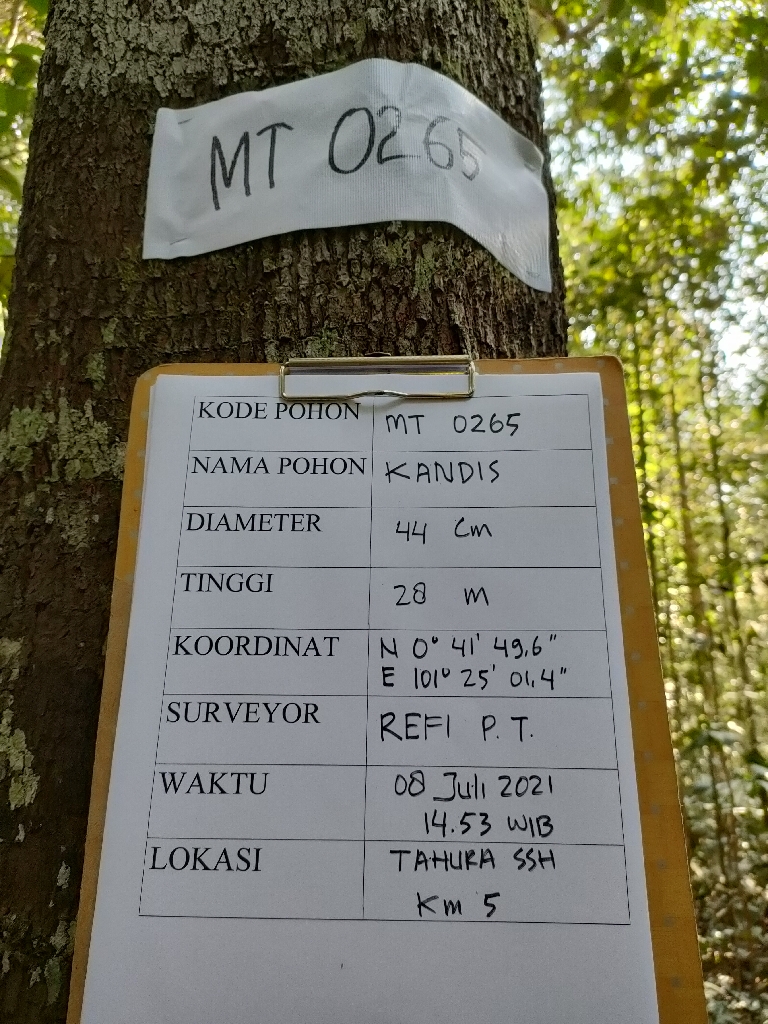 MT 0265
KODE POHON MT 0265
NAMA POHON KANDIS
DIAMETER 44 Cm
TINGGI 28 m
KOORDINAT N 0° 41' 49,6"
E 101° 25' 01,4"
SURVEYOR REFI P. T.
WAKTU 08 Juli 2021
14.53 WIB
LOKASI TAHURA SSH
Km 5